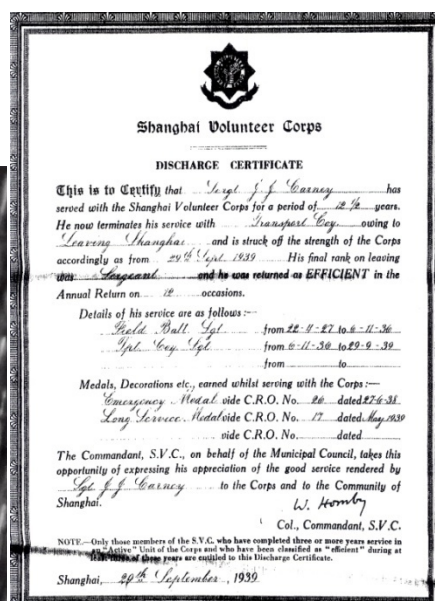 Shanghai Volunteer Corps
DISCHARGE CERTIFICATE
This is to Certify that Sergt J. J. Carney has
served with the Shanghai Volunteer Corps for a period of 12 ½ years.
He now terminates his service with Transport Coy. owing to
Leaving Shanghai and is struck off the strength of the Corps
accordingly as from 29th Sept. 1939 His final rank on leaving
was Sergeant and he was returned as EFFICIENT in the
Annual Return on 12 occasions.
Details of his service are as follows:—
Field Batt. Sgt from 22-11-27 to 6-11-36
Tpt. Coy. Sgt from 6-11-36 to 29-9-39
from to
Medals, Decorations etc., earned whilst serving with the Corps:—
Emergency Medal vide C.R.O. No. 26 dated 27-6-38
Long Service Medal vide C.R.O. No. 17 dated May 1939
vide C.R.O. No. dated
The Commandant, S.V.C., on behalf of the Municipal Council, takes this
opportunity of expressing his appreciation of the good service rendered by
Sgt. J. J. Carney to the Corps and to the Community of
Shanghai.
W. Hornby
Col., Commandant, S.V.C.
NOTE.—Only those members of the S.V.C. who have completed three or more years service in
an "Active" Unit of the Corps and who have been classified as "efficient" during at
least three of these years are entitled to this Discharge Certificate.
Shanghai, 29th September, 1939